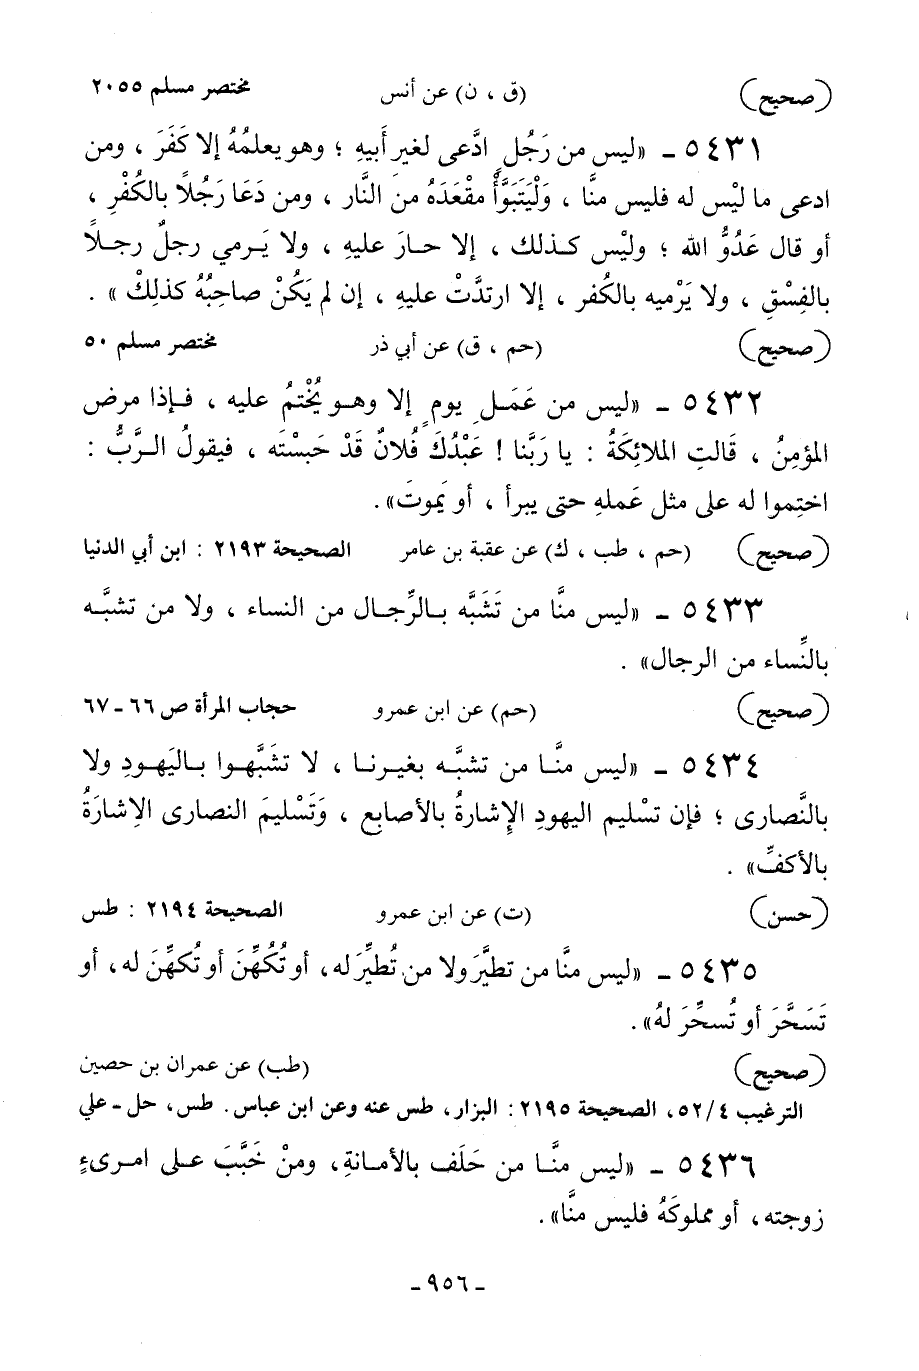 (صحيح) (ق ، ن) عن أنس مختصر مسلم ٢٠٥٥
٥٤٣١ ـ «ليس من رَجُلٍ ادَّعى لغيرِ أَبيهِ ؛ وهو يعلمُهُ إلا كَفَرَ ، ومن
ادعى ما ليْس له فليس منَّا ، وَلْيَتَبَوَّأْ مقْعَدَهُ منَ النَّار ، ومن دَعَا رَجُلاً بالكُفْرِ ،
أو قال عَدُوُّ الله ؛ وليْس كذلك ، إلا حارَ عليهِ ، ولا يَرمي رجلٌ رجلاً
بالفِسْقِ ، ولا يَرْميه بالكُفر ، إلا ارتدَّتْ عليهِ ، إن لم يَكُنْ صاحِبُهُ كذلِكْ» .
(صحيح) (حم ، ق) عن أبي ذر مختصر مسلم ٥٠
٥٤٣٢ ـ «ليس من عَمَلِ يومٍ إلا وهو يُخْتمُ عليه ، فإذا مرض
المؤمِنُ ، قَالتِ الملائِكَةُ : يا رَبَّنا ! عَبْدُكَ فُلانٌ قَدْ حَبسْتَه ، فيقولُ الرَّبُّ :
اختِموا له على مثل عَملهِ حتى يبرأ ، أو يَموتَ».
(صحيح) (حم ، طب ، ك) عن عقبة بن عامر الصحيحة ٢١٩٣ : ابن أبي الدنيا
٥٤٣٣ ـ «ليس منَّا من تَشَبَّه بالرِّجال من النساء ، ولا من تشبَّه
بالنِّساء من الرجال» .
(صحيح) (حم) عن ابن عمرو حجاب المرأة ص ٦٦ ـ ٦٧
٥٤٣٤ ـ «ليس منَّا من تشبَّه بغيرنا ، لا تشَبَّهوا باليَهودِ ولا
بالنَّصارى ؛ فإن تسْليم اليهودِ الإِشارةُ بالأصابِع ، وَتَسْليمَ النصارى الإِشارَةُ
بالأكفِّ» .
(حسن) (ت) عن ابن عمرو الصحيحة ٢١٩٤ : طس
٥٤٣٥ ـ «ليس منَّا من تطيَّرَ ولا من تُطيِّرَ له، أو تُكُهِّنَ أو تُكهِّنَ له، أو
تَسَحَّرَ أو تُسحِّرَ لهُ».
(صحيح) (طب) عن عمران بن حصين
الترغيب ٤/٥٢، الصحيحة ٢١٩٥: البزار، طس عنه وعن ابن عباس. طس، حل ـ علي
٥٤٣٦ ـ «ليس منَّا من حَلَف بالأمانةِ، ومنْ خَبَّبَ على امرىءٍ
زوجته، أو مملوكَهُ فليس منَّا».
ـ ٩٥٦ ـ